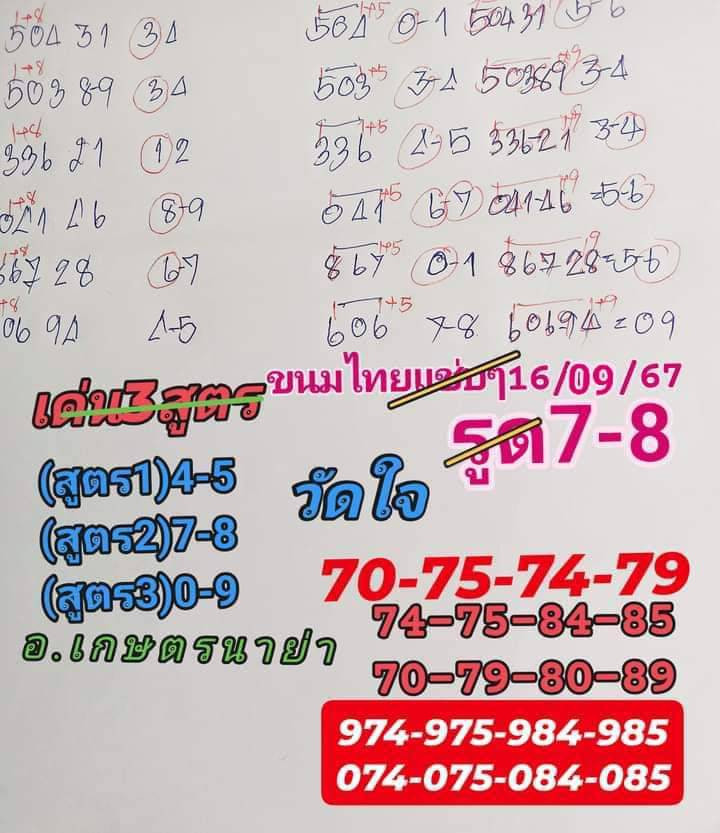 1+8
50431 34
1+8
50389 34
1+8
33621 12
1+8
041 46 8-9
1+8
867 28 6-7
+8
06 94 4-5
1+5
504 0-1 50431 5-6
1+5 1+9
503 3-4 50389 3-4
1+5 1+9
336 4-5 336-21 3-4
1+5 1+9
041 6-7 041-46 =5-6
1+5 9
867 0-1 86728=5-6
1+5 1+9
606 7-8 606-94=09
เด่น3สูตร
ขนมไทยแซ่บๆ16/09/67
รูด7-8
(สูตร1)4-5
(สูตร2)7-8
(สูตร3)0-9
วัดใจ
อ.เกษตรนาย่า
70-75-74-79
74-75-84-85
70-79-80-89
974-975-984-985
074-075-084-085